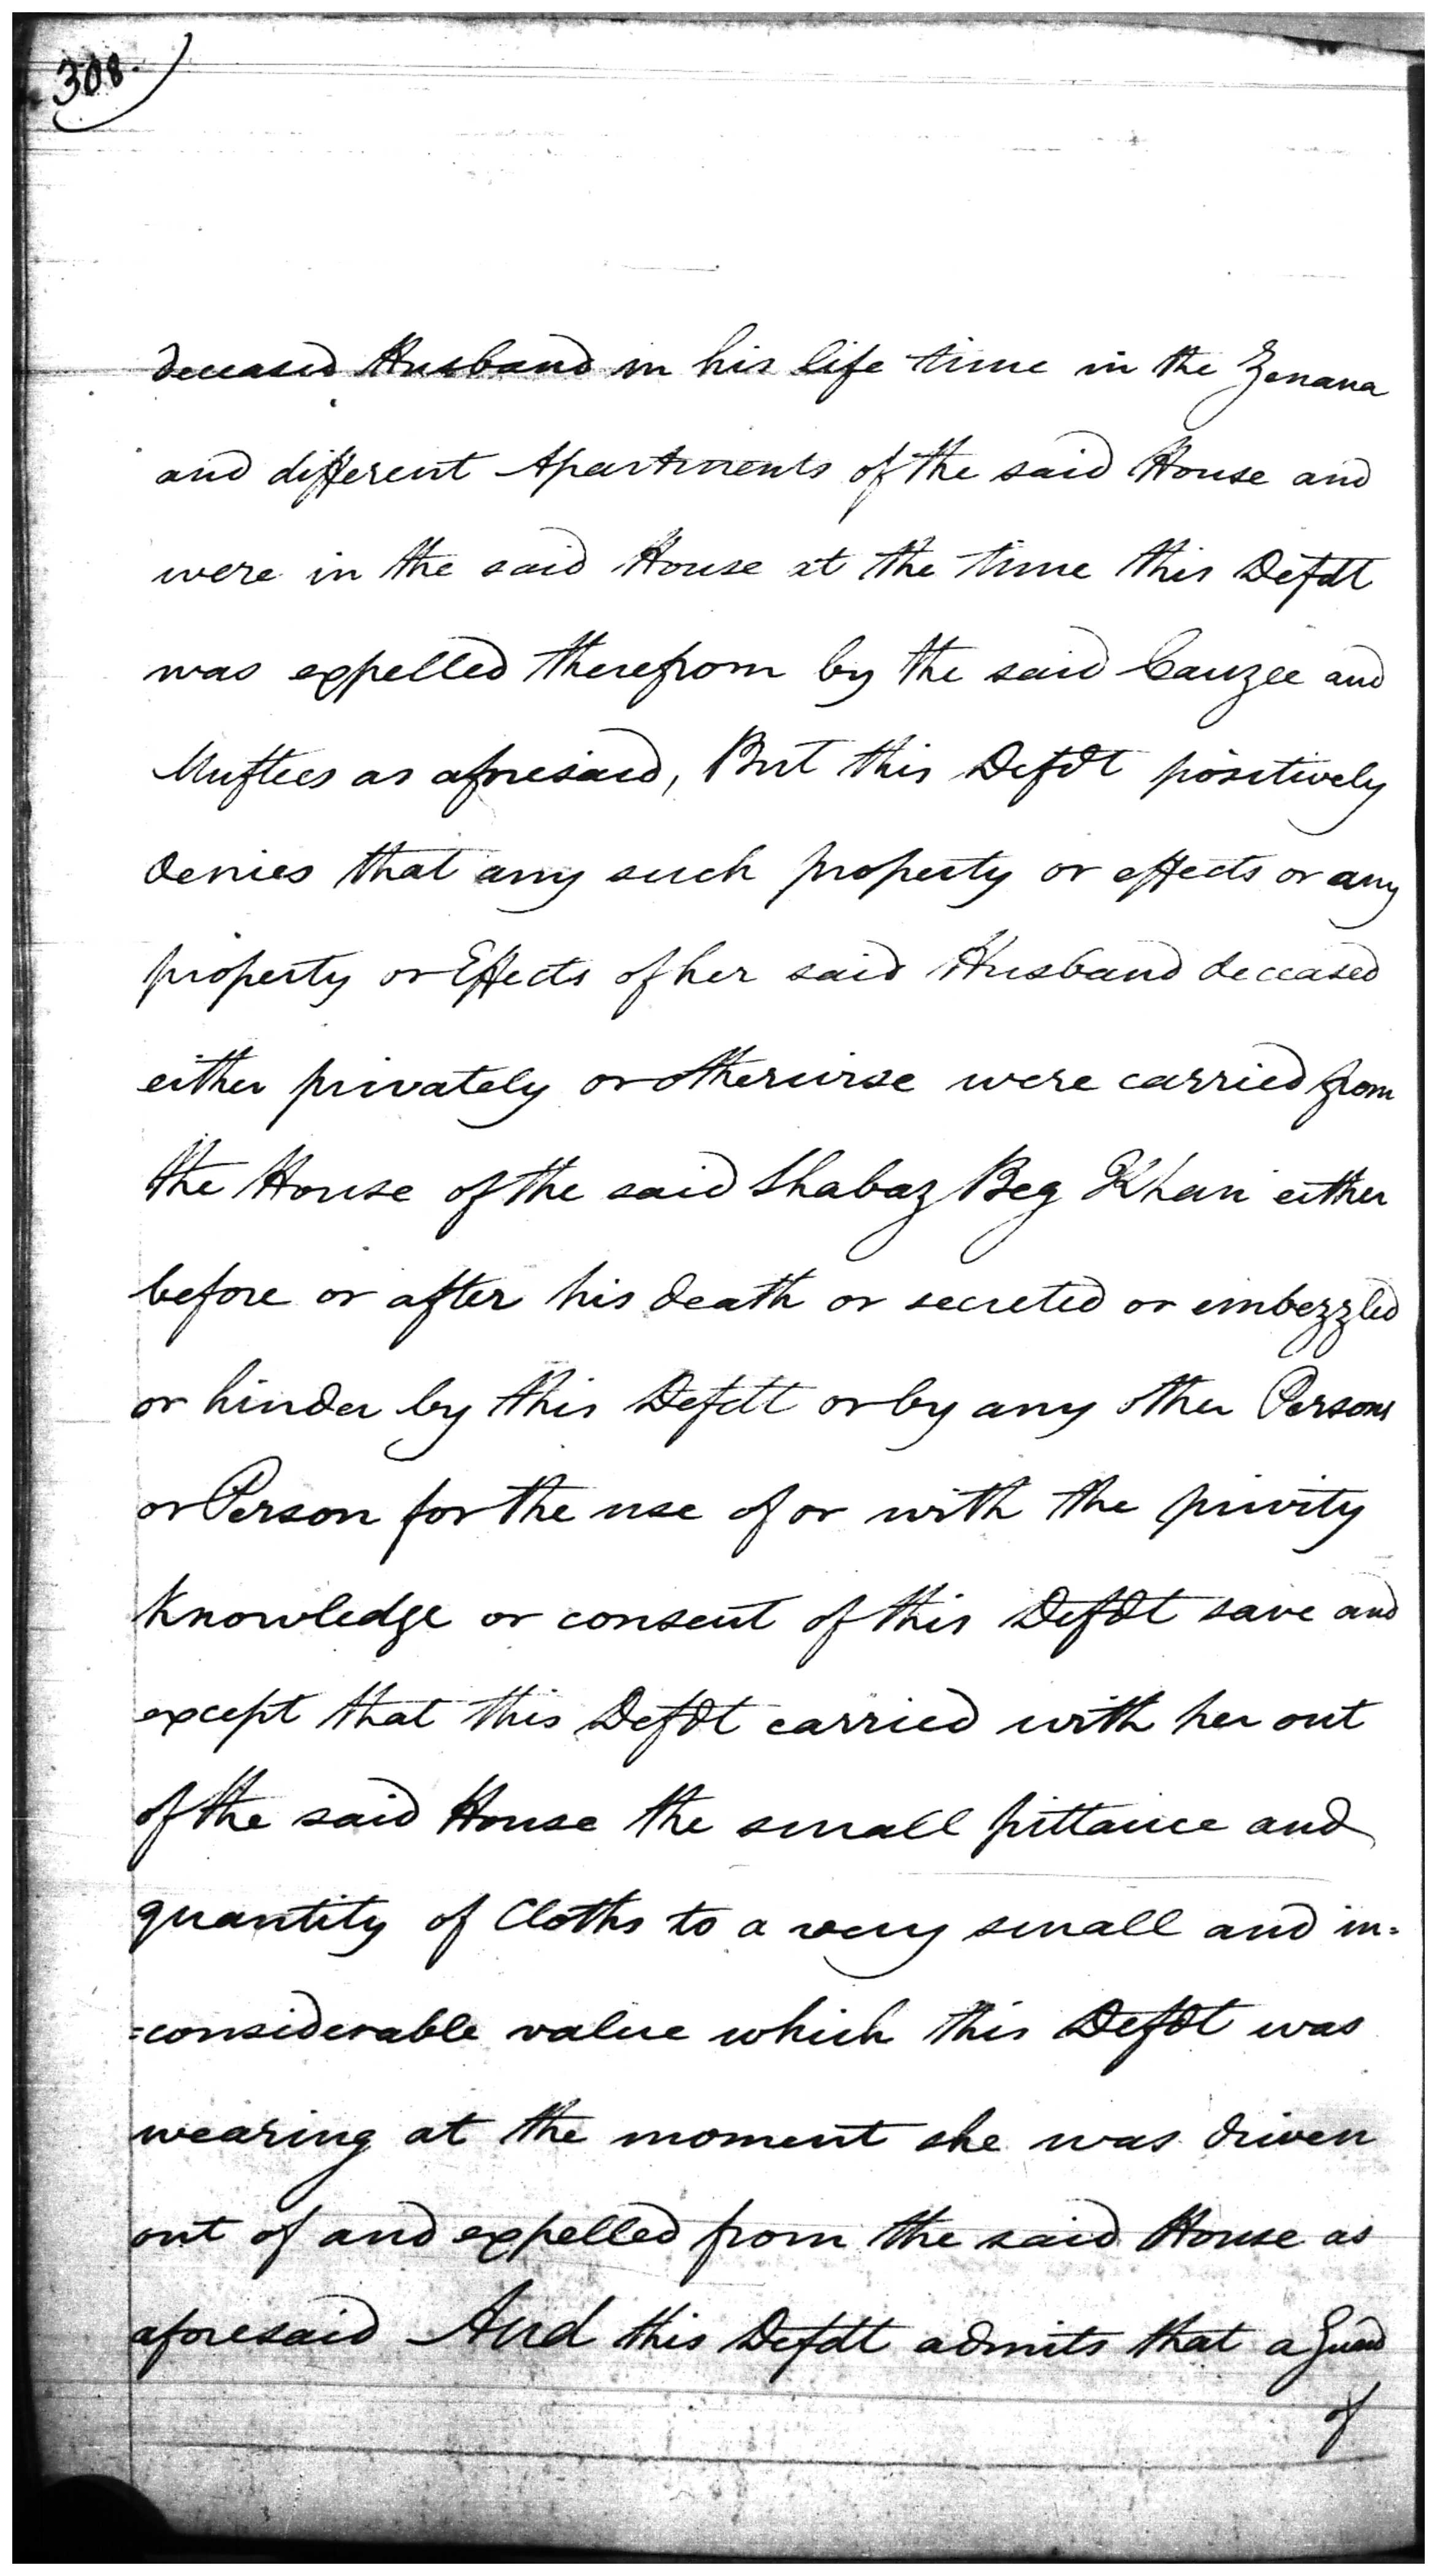 308.
deceased Husband in his life time in the Zenana
and different Apartments of the said House and
were in the said House at the time this Defdt
was expelled therefrom by the said Cauzee and
Muftees as aforesaid, But this Defdt positively
denies that any such property or effects or any
property or Effects of her said Husband deceased
either privately or otherwise were carried from
the House of the said Shabaz Beg Khan either
before or after his death or secreted or imbezzled
or hinder by this Defdt or by any other Persons
or Person for the use of or with the privity
knowledge or consent of this Defdt save and
except that this Defdt carried with her out
of the said House the small pittance and
quantity of Cloths to a very small and in=
=considerable value which this Defdt was
wearing at the moment she was driven
out of and expelled from the said House as
aforesaid And this Defdt admits that a Guard
of